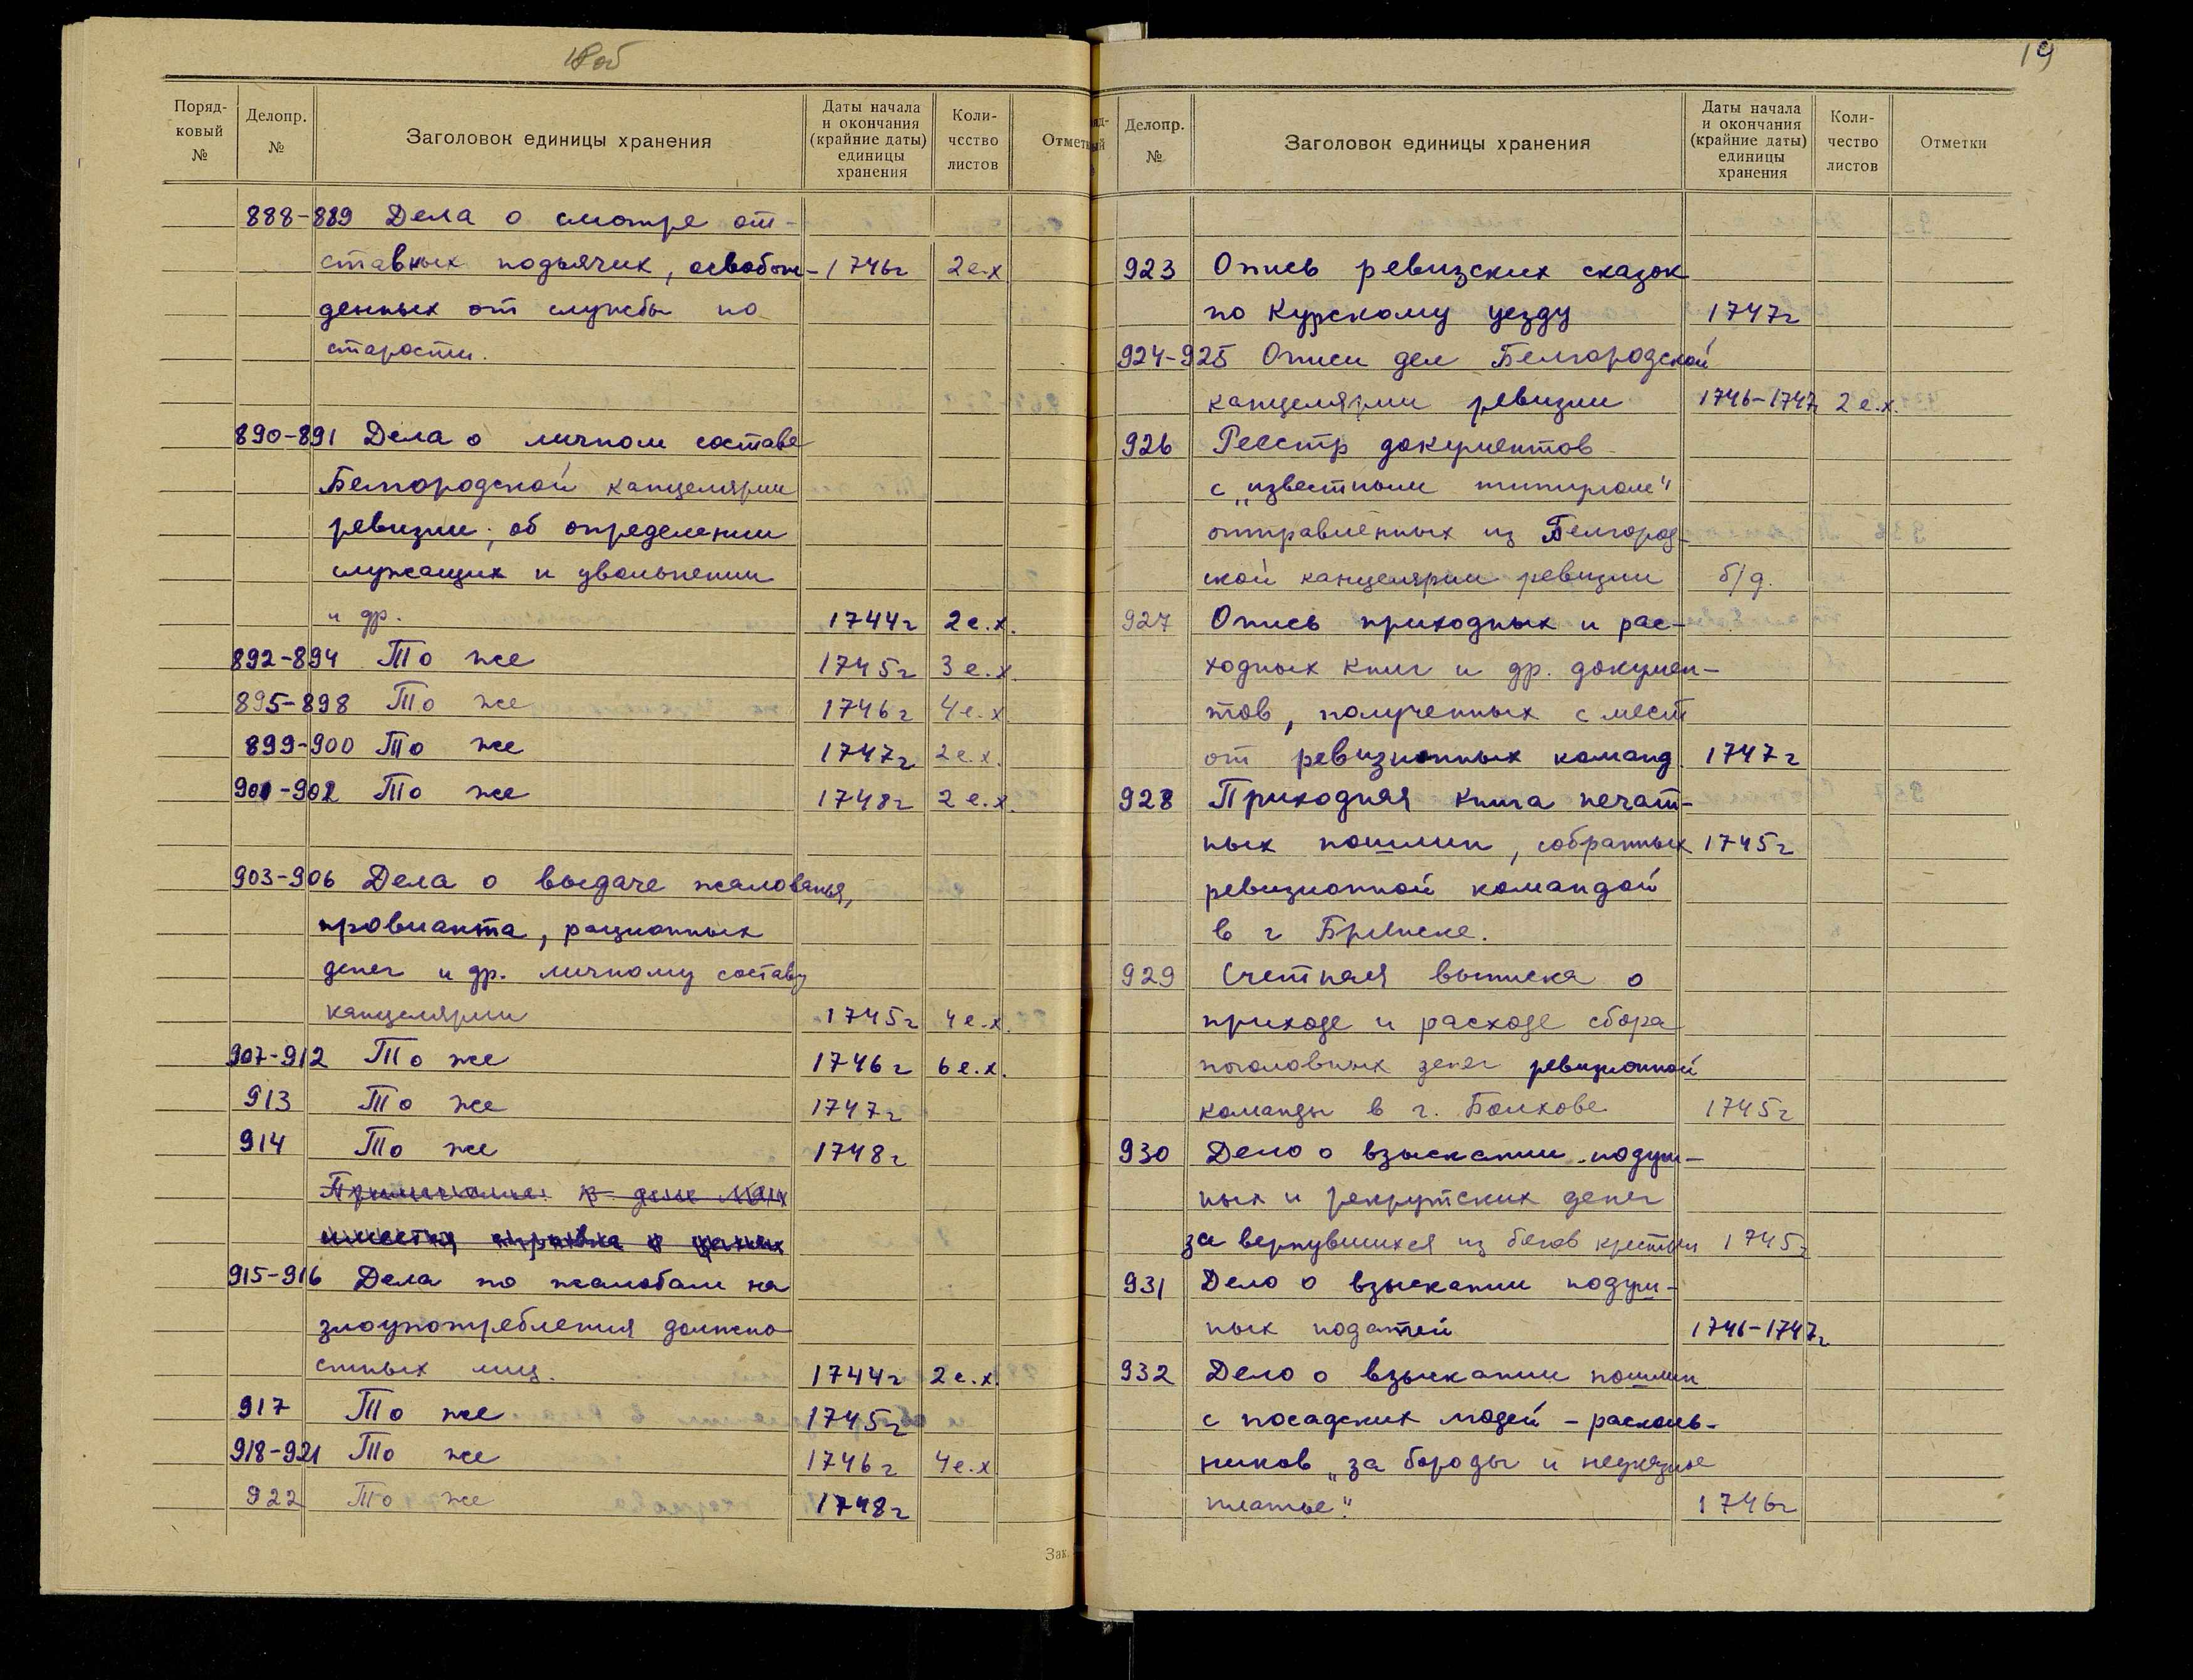 18об
Поряд-
ковый
№
Делопр.
№
Заголовок единицы хранения
Даты начала
и окончания
(крайние даты)
единицы
хранения
Коли-
чество
листов
Отметк
888-889 Дела о смотре от-
ставных подьячих, освобож- 1746г 2 е.х
денных от службы по
старости.
890-891 Дела о личном составе
Белгородской канцелярии
ревизии; об определении
служащих и увольнении
и др. 1744г 2 е.х.
892-894 То же 1745г 3 е.х.
895-898 То же 1746г 4 е.х.
899-900 То же 1747г 2 е.х.
901-902 То же 1748г 2 е.х.
903-906 Дела о выдаче жалованья,
провианта, рационных
денег и др. личному составу
канцелярии 1745г 4 е.х.
907-912 То же 1746г 6 е.х.
913 То же 1747г
914 То же 1748г
Примечание: в деле
имеется справка о ценах
915-916 Дела по жалобам на
злоупотребления должно
стных лиц. 1744г 2 е.х.
917 То же 1745г
918-921 То же 1746г 4 е.х
922 То же 1748г
Зак.
19
Делопр.
№
Заголовок единицы хранения
Даты начала
и окончания
(крайние даты)
единицы
хранения
Коли-
чество
листов
Отметки
923 Опись ревизских сказок
по Курскому уезду 1747г
924-925 Описи дел Белгородской
канцелярии ревизии 1746-1747 2 е.х.
926 Реестр документов
с „известным титулом"
отправленных из Белгород-
ской канцелярии ревизии б/д.
927 Опись приходных и рас-
ходных книг и др. докумен-
тов, полученных с мест
от ревизионных команд. 1747г
928 Приходная книга печат-
ных пошлин, собранных 1745г
ревизионной командой
в г Брянске.
929 Счетная выписка о
приходе и расходе сбора
поголовных денег ревизионной
команды в г. Болхове 1745г
930 Дело о взыскании подуш-
ных и рекрутских денег
за вернувшихся из бегов крестьян 1745г
931 Дело о взыскании подуш-
ных податей 1746-1747г
932 Дело о взыскании пошлин
с посадских людей - расколь-
ников „за бороды и неуказное
платье". 1746г